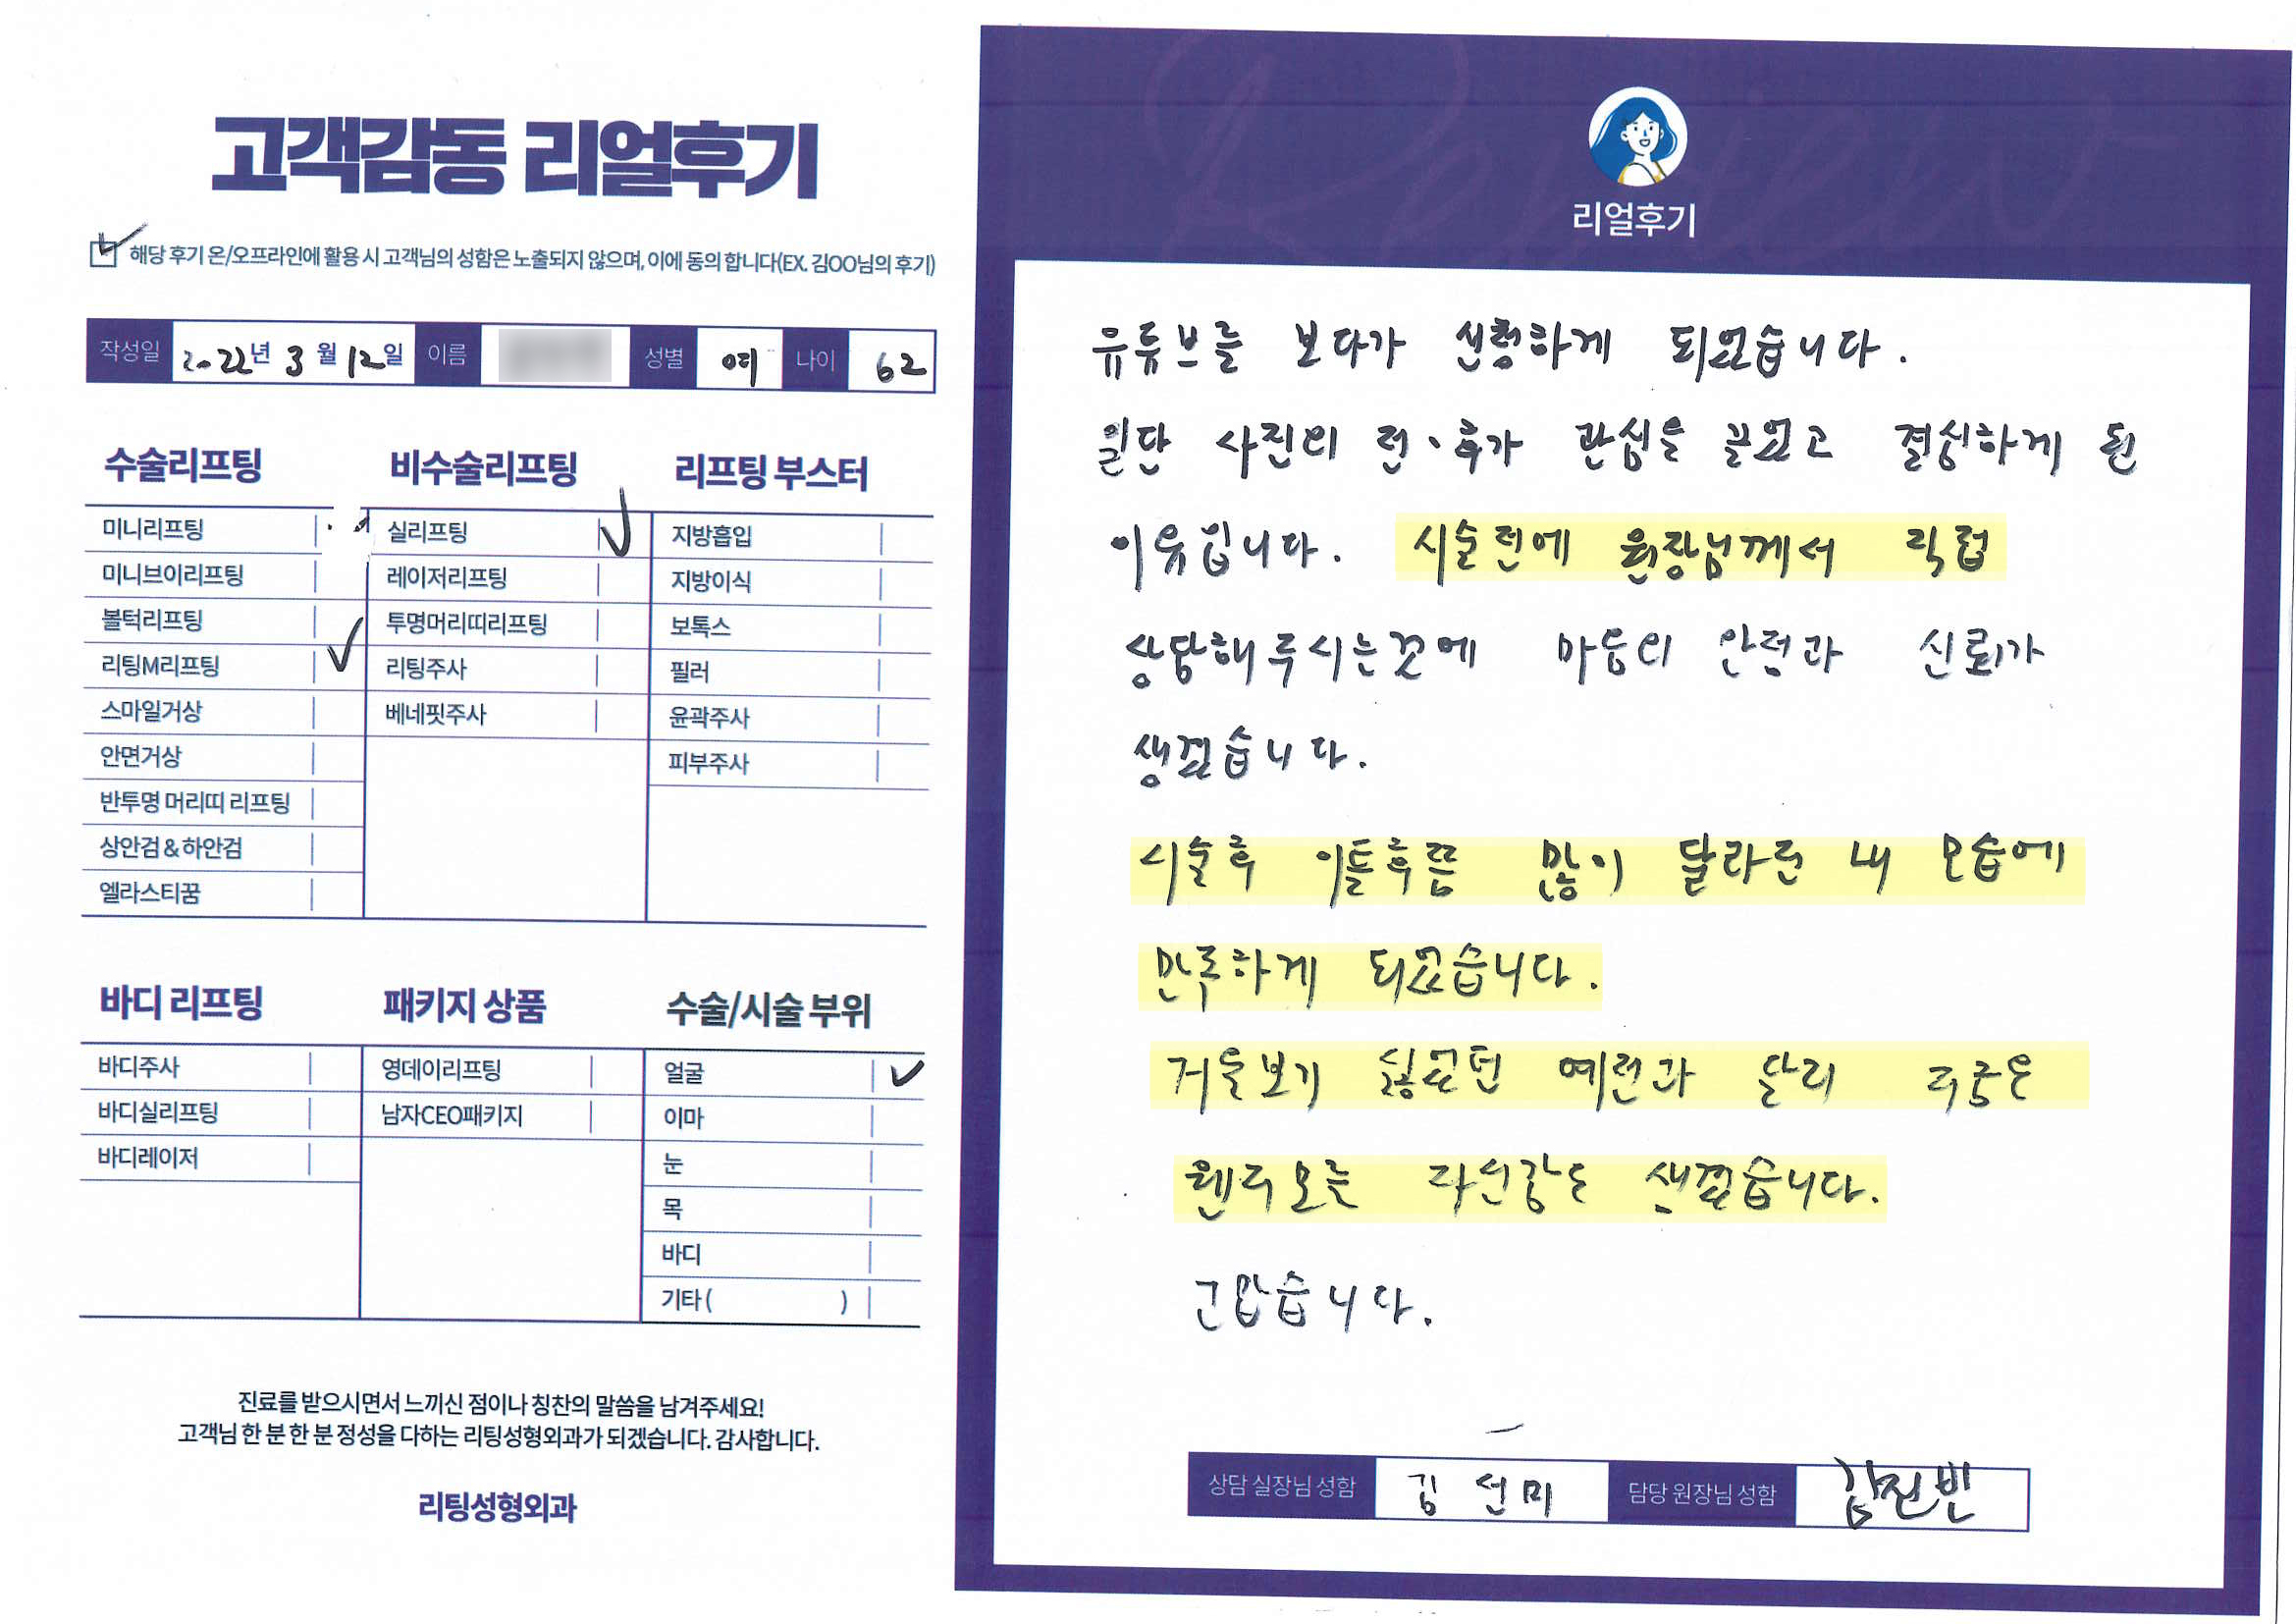 고객감동 리얼후기
해당 후기 온/오프라인에 활용 시 고객님의 성함은 노출되지 않으며, 이에 동의 합니다(EX. 김OO님의 후기)
작성일 2022년 3월 12일 이름 성별 여 나이 62
수술리프팅
미니리프팅
미니브이리프팅
볼턱리프팅
리팅M리프팅
스마일거상
안면거상
반투명 머리띠 리프팅
상안검 & 하안검
엘라스티꿈
비수술리프팅
실리프팅
레이저리프팅
투명머리띠리프팅
리팅주사
베네핏주사
리프팅 부스터
지방흡입
지방이식
보톡스
필러
윤곽주사
피부주사
바디 리프팅
바디주사
바디실리프팅
바디레이저
패키지 상품
영데이리프팅
남자CEO패키지
수술/시술 부위
얼굴
이마
눈
목
바디
기타 ( )
진료를 받으시면서 느끼신 점이나 칭찬의 말씀을 남겨주세요!
고객님 한 분 한 분 정성을 다하는 리팅성형외과가 되겠습니다. 감사합니다.
리팅성형외과
Review
리얼후기
유튜브를 보다가 신청하게 되었습니다.
일단 사진의 전·후가 관심을 끌었고 결심하게 된
이유입니다. 시술전에 원장님께서 직접
상담해주시는것에 마음의 안정과 신뢰가
생겼습니다.
시술후 이틀후쯤 많이 달라진 내 모습에
만족하게 되었습니다.
거울보기 싫었던 예전과 달리 지금은
웬지모를 자신감도 생겼습니다.
고맙습니다.
상담 실장님 성함 김선미 담당 원장님 성함 김진빈